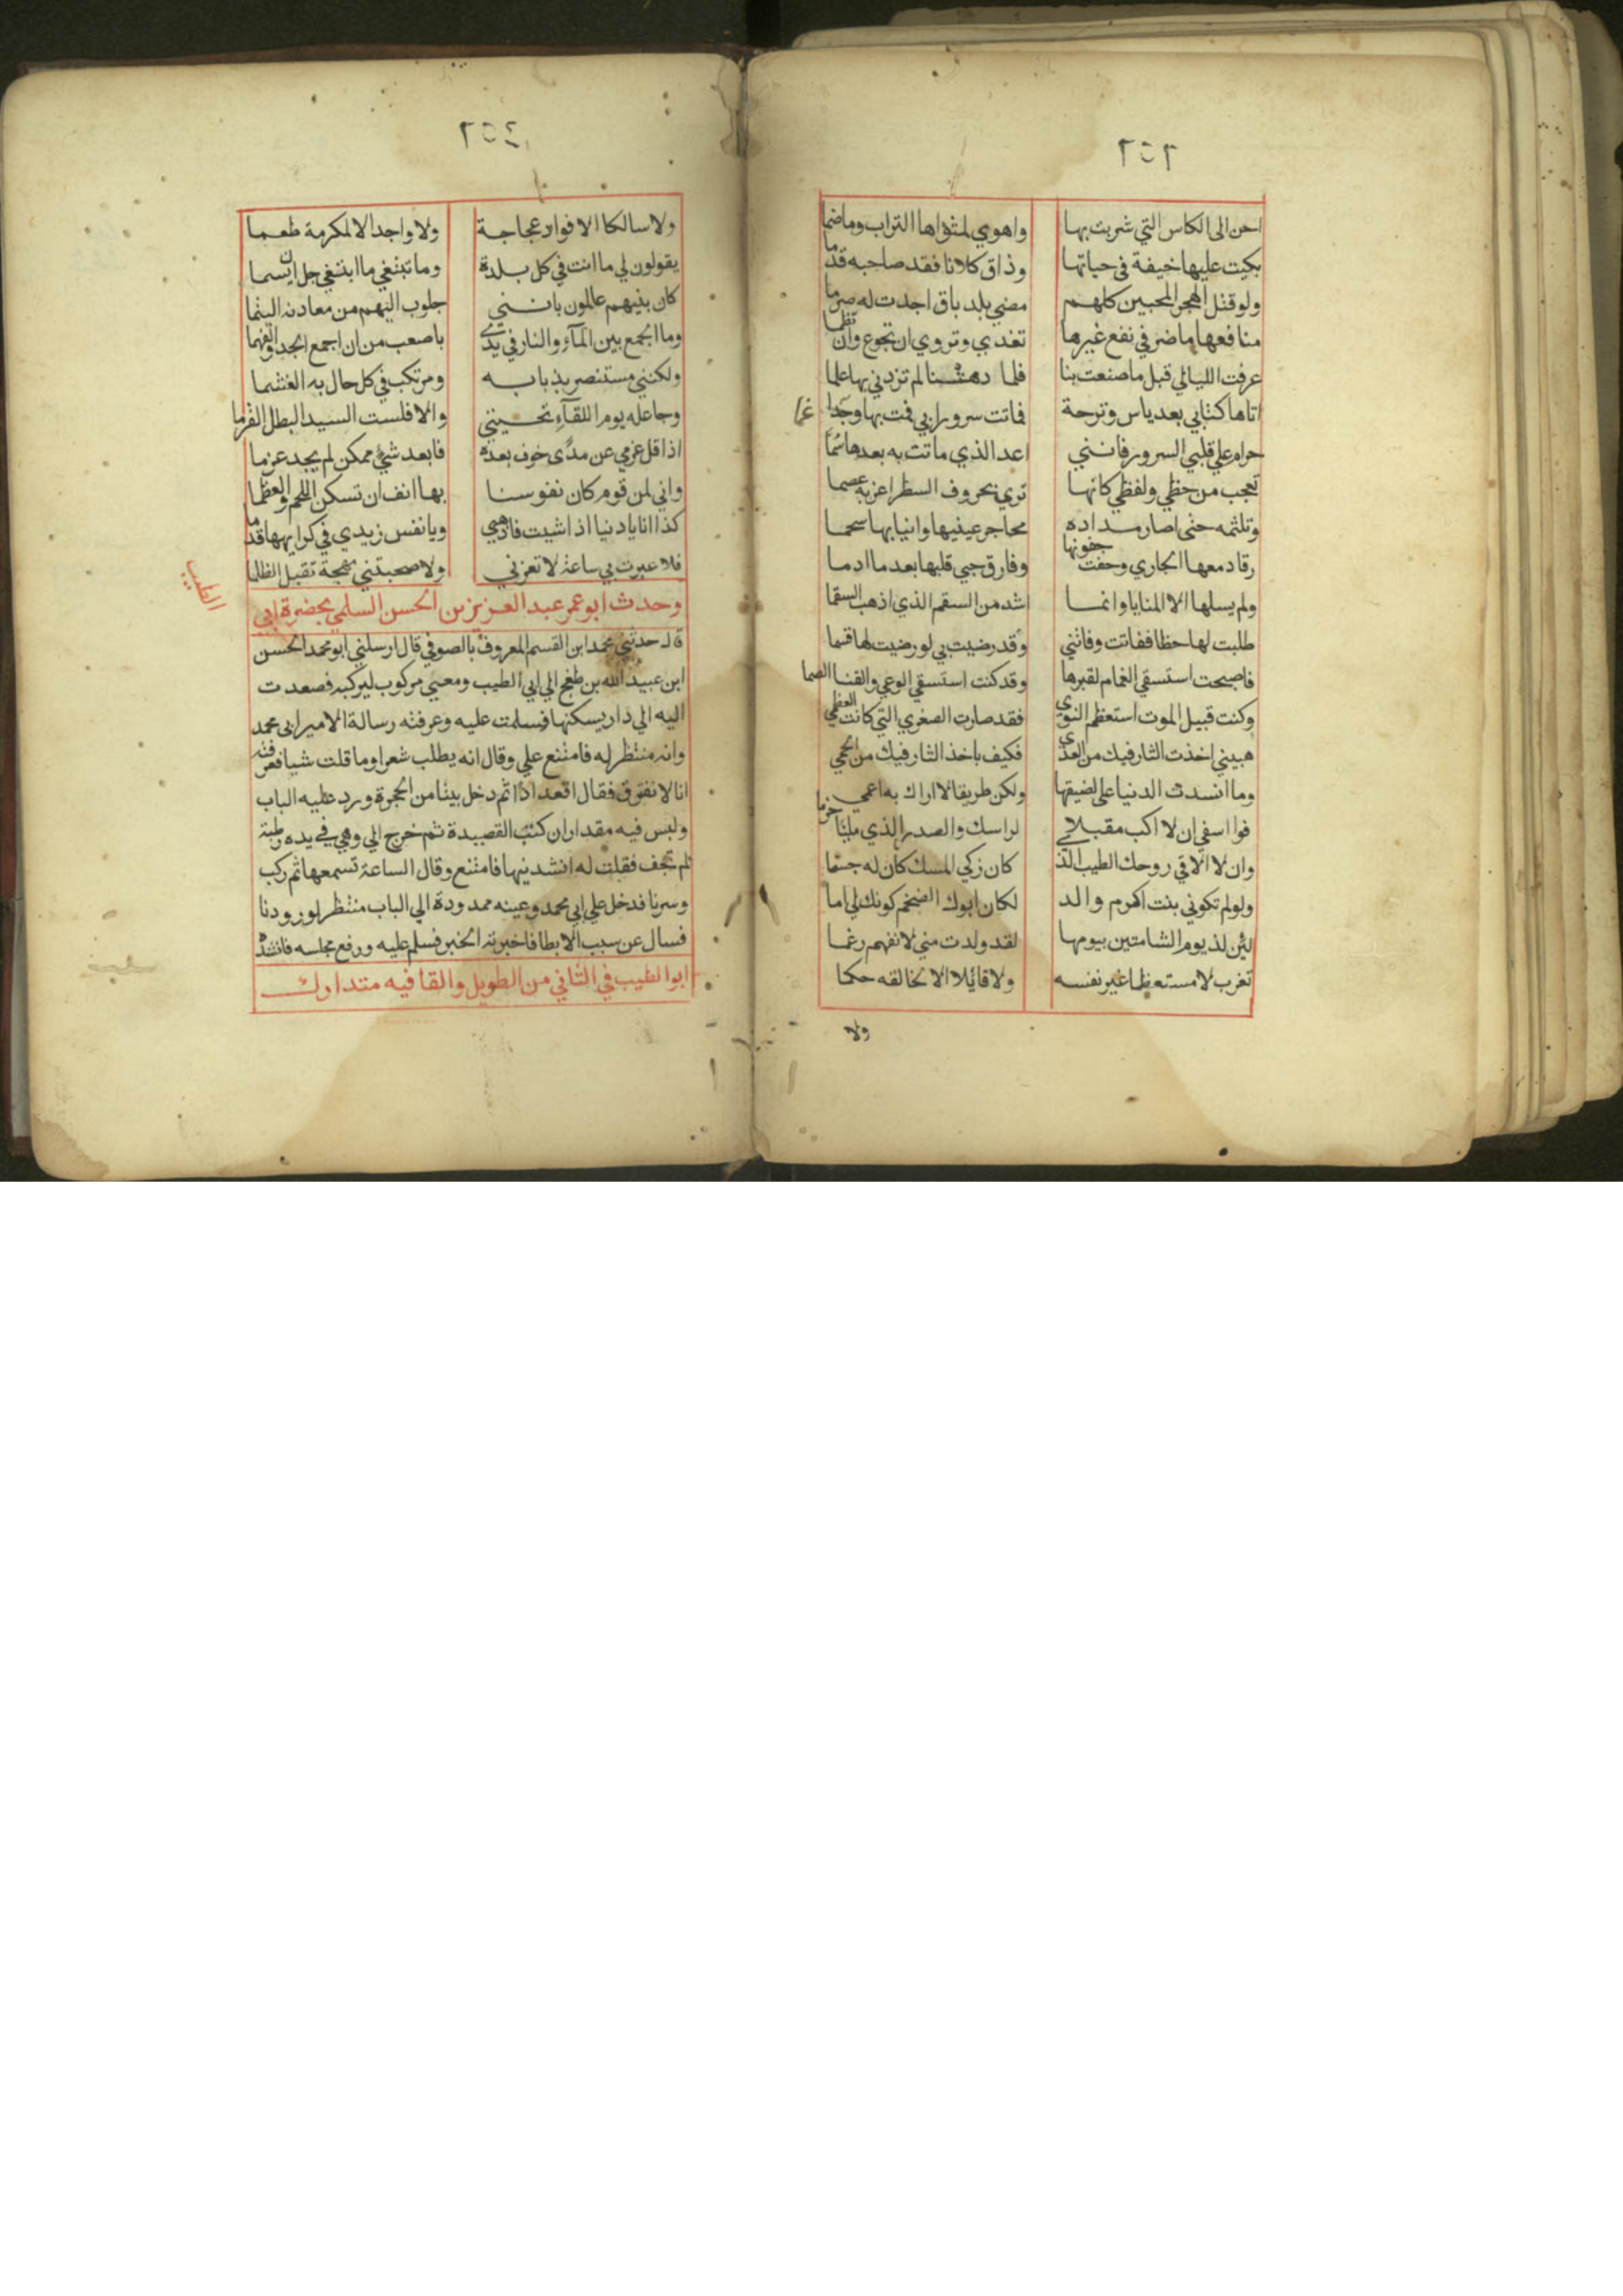 ٢٥٦
احن الى الكاس التي شربت بها واهوي لمثواها التراب وما ضما
بكيت عليها خيفة في حياتها وذاق كلانا فقد صاحبه قدما
ولو قتل الهجر المحبين كلهم مضي بلد باق اجدت له صرما
منافعها ما ضر في نفع غيرها تغذي وتروي ان تجوع وان تظما
عرفت الليالي قبل ما صنعت بنا فلما دهتنا لم تزدني بها علما
اتاها كتابي بعد ياس وترحة فماتت سرورا بي فمت بها وجدا غما
حرام علي قلبي السرور فانني اعد الذي ماتت به بعدها سما
تعجب من خطي ولفظي كانها تري بحروف السطر اغربه عصما
وتلثمه حتى اصار مداده محاجر عينيها وانيابها سحما
رقا دمعها الجاري وجفت جفونها وفارق حبي قلبها بعد ما ادما
ولم يسلها الا المنايا وانما اشد من السقم الذي اذهب السقما
طلبت لها حظا ففاتت وفاتني وقد رضيت بي لو رضيت لها قسما
فاصبحت استسقي الغمام لقبرها وقد كنت استسقي الوغي والقنا الصما
وكنت قبيل الموت استعظم النوي فقد صارت الصغري التي كانت العظمي
هبيني اخذت الثار فيك من العدي فكيف باخذ الثار فيك من الحمي
وما انسدت الدنيا علي لضيقها ولكن طرفا لا اراك به اعمي
فوا اسفي ان لا اكب مقبلا لراسك والصدر الذي مليا حزما
وان لا الاقي روحك الطيب الذ كان زكي المسك كان له جسما
ولو لم تكوني بنت اكرم والد لكان ابوك الضخم كونك لي اما
لئن لذ يوم الشامتين بيومها لقد ولدت مني لانفهم رغما
تغرب لا مستعظما غير نفسه ولا قائلا الا لخالقه حكما
ولا
٢٥٤
ولا سالكا الا فواد عجاجة ولا واجد الا لمكرمة طعما
يقولون لي ما انت في كل بلدة وما تبتغي ما ابتغي جل ان يسما
كان بنيهم عالمون بانني جلوب اليهم من معادنه اليتما
وما الجمع بين المآء والنار في يدي باصعب من ان اجمع الجد والفهما
ولكنني مستنصر بذبابه ومرتكب في كل حال به الغشما
وجاعله يوم اللقآء تحيتي والا فلست السيد البطل القرما
اذا قل عزمي عن مدًى خوف بعده فابعد شيء ممكن لم يجد عزما
واني لمن قوم كان نفوسنا بها انف ان تسكن اللحم والعظما
كذا انا يا دنيا اذا شيت فاذهبي ويا نفس زيدي في كرايهها قدما
فلا عبرت بي ساعة لا تعزني ولا صحبتني مهجة تقبل الظلما
وحدث ابو عمر عبد العزيز بن الحسن السلمي بحضرة ابي الطيب
قال حدثني محمد ابن القسم المعروف بالصوفي قال ارسلني ابو محمد الحسن
ابن عبيد الله بن طغج الي ابي الطيب ومعي مركوب ليركبه فصعدت
اليه الي دار يسكنها فسلمت عليه وعرفته رسالة الامير ابى محمد
وانه منتظر له فامتنع علي وقال انه يطلب شعرا وما قلت شيا فعرفته
انا لا نفترق فقال اقعد اذًا ثم دخل بيتا من الحجرة ورد عليه الباب
ولبس فيه مقدار ان كتب القصيدة ثم خرج الي وهي في يده رطبة
لم تجف فقلت له انشدنيها فامتنع وقال الساعة تسمعها ثم ركب
وسرنا فدخل علي ابي محمد وعينه ممدودة الي الباب منتظرا لورودنا
فسال عن سبب الابطا فاخبرته الخبر فسلم عليه ورفع مجلسه فانشده
ابو الطيب في الثاني من الطويل والقافيه متدارك